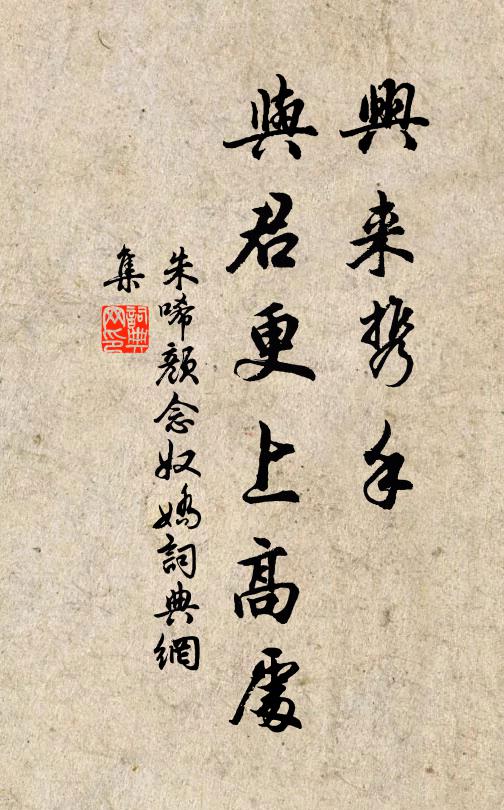 興来携手
與君更上高處
朱晞顏念奴嬌詞典網
集
詞典网印